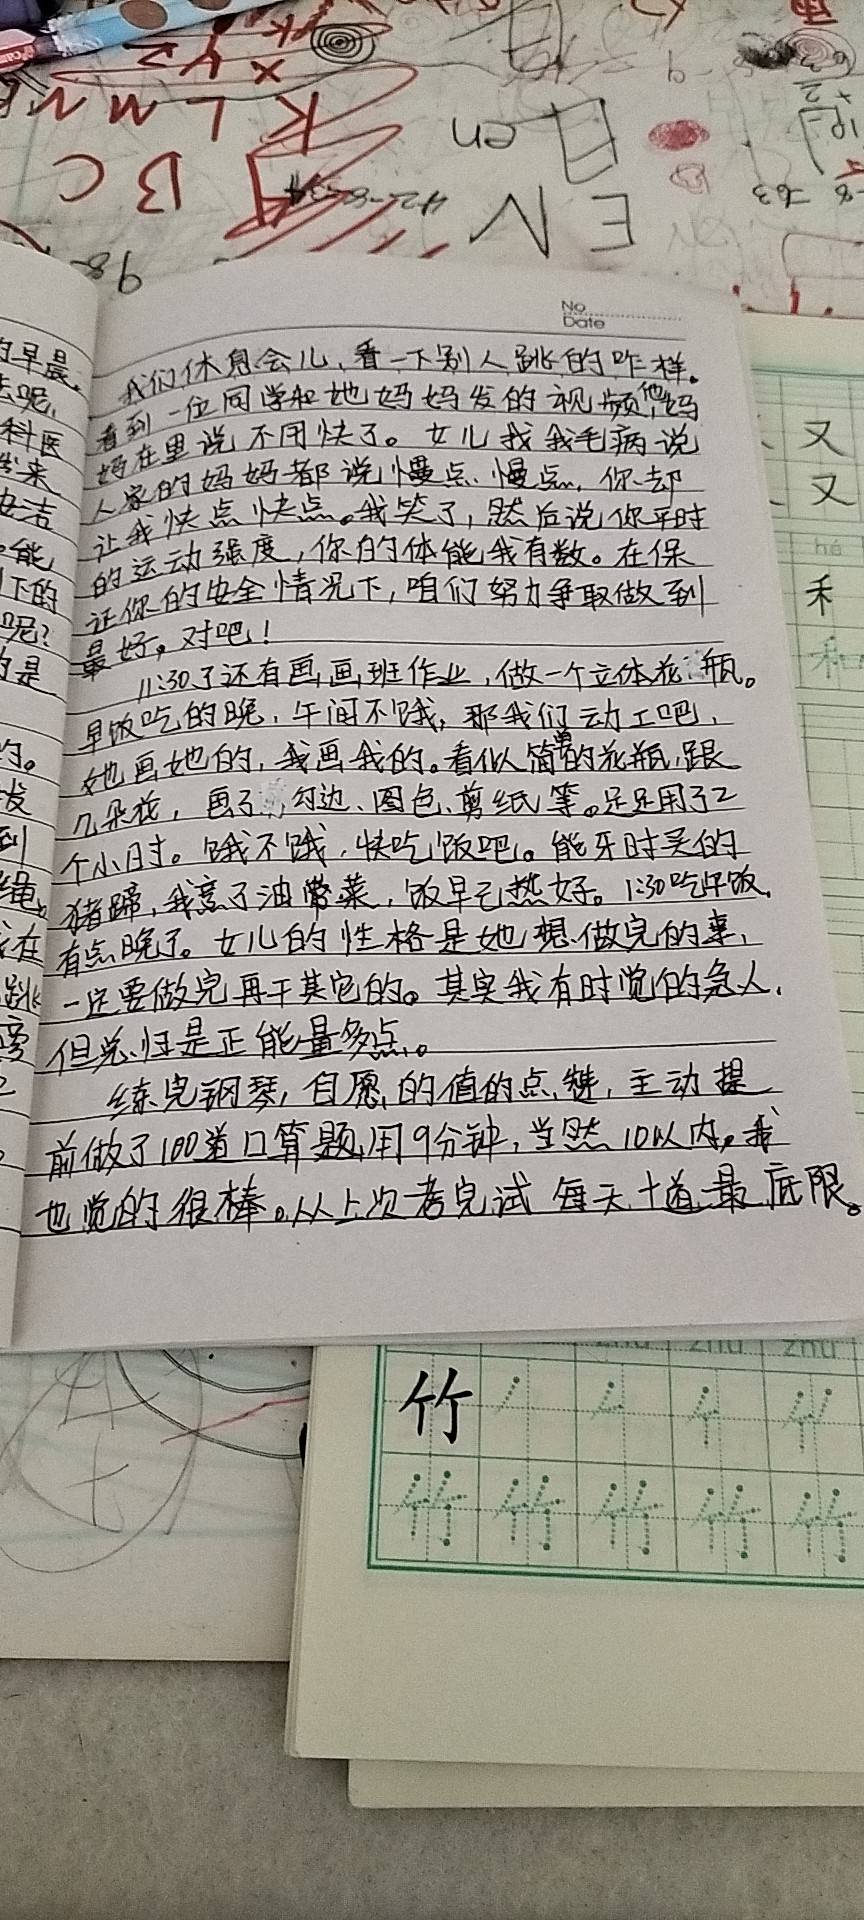 X Y Z
K L M N
B C
en
E N
42-8=34
98-
No
Date
的早晨。
去呢,
科医
能
下的
呢?
是
的。
发
到
绳。
在
跳
我们休息会儿、看一下别人跳的咋样。
看到一位同学和她妈妈发的视频,他妈
妈在里说不用快了。女儿找我毛病说
人家的妈妈都说慢点、慢点,你却
让我快点快点。我笑了,然后说你平时
的运动强度,你的体能我有数。在保
证你的安全情况下,咱们努力争取做到
最好。对吧!
11:30了还有画画班作业,做一个立体花瓶。
早饭吃的晚,午间不饿,那我们动工吧,
她画她的,我画我的。看似简单的花瓶,跟
几朵花,画了勾边、图色、剪纸等。足足用了2
个小时。饿不饿,快吃饭吧。能牙时买的
猪蹄,我烹了油常菜,饭早已热好。1:30吃午饭,
有点晚了。女儿的性格是她想做完的事,
一定要做完再干其它的。其实我有时觉的急人,
但总归是正能量多点。
练完钢琴,自愿的值的点赞,主动提
前做了100道口算题,用9分钟,当然10以内。我
也觉的很棒。从上次考完试每天十道最底限。
又
又
hé
禾
禾
zhú zhú zhú
竹
竹 竹 竹 竹 竹